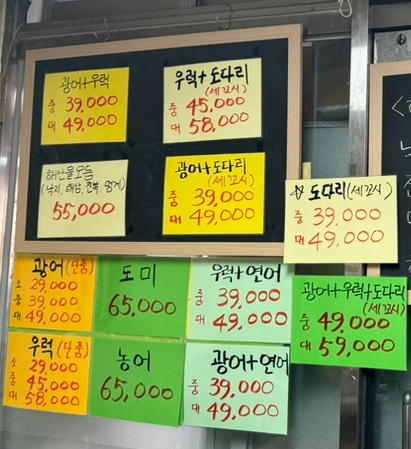 광어+우럭
중 39,000
대 49,000
우럭+도다리
(세꼬시)
중 45,000
대 58,000
해산물모듬
(낙지, 해삼, 전복, 멍게)
55,000
광어+도다리
(세꼬시)
중 39,000
대 49,000
☆ 도다리(세꼬시)
중 39,000
대 49,000
광어(단품)
소 29,000
중 39,000
대 49,000
도미
65,000
우럭+연어
중 39,000
대 49,000
광어+우럭+도다리
(세꼬시)
중 49,000
대 59,000
우럭(단품)
소 29,000
중 45,000
대 58,000
농어
65,000
광어+연어
중 39,000
대 49,000